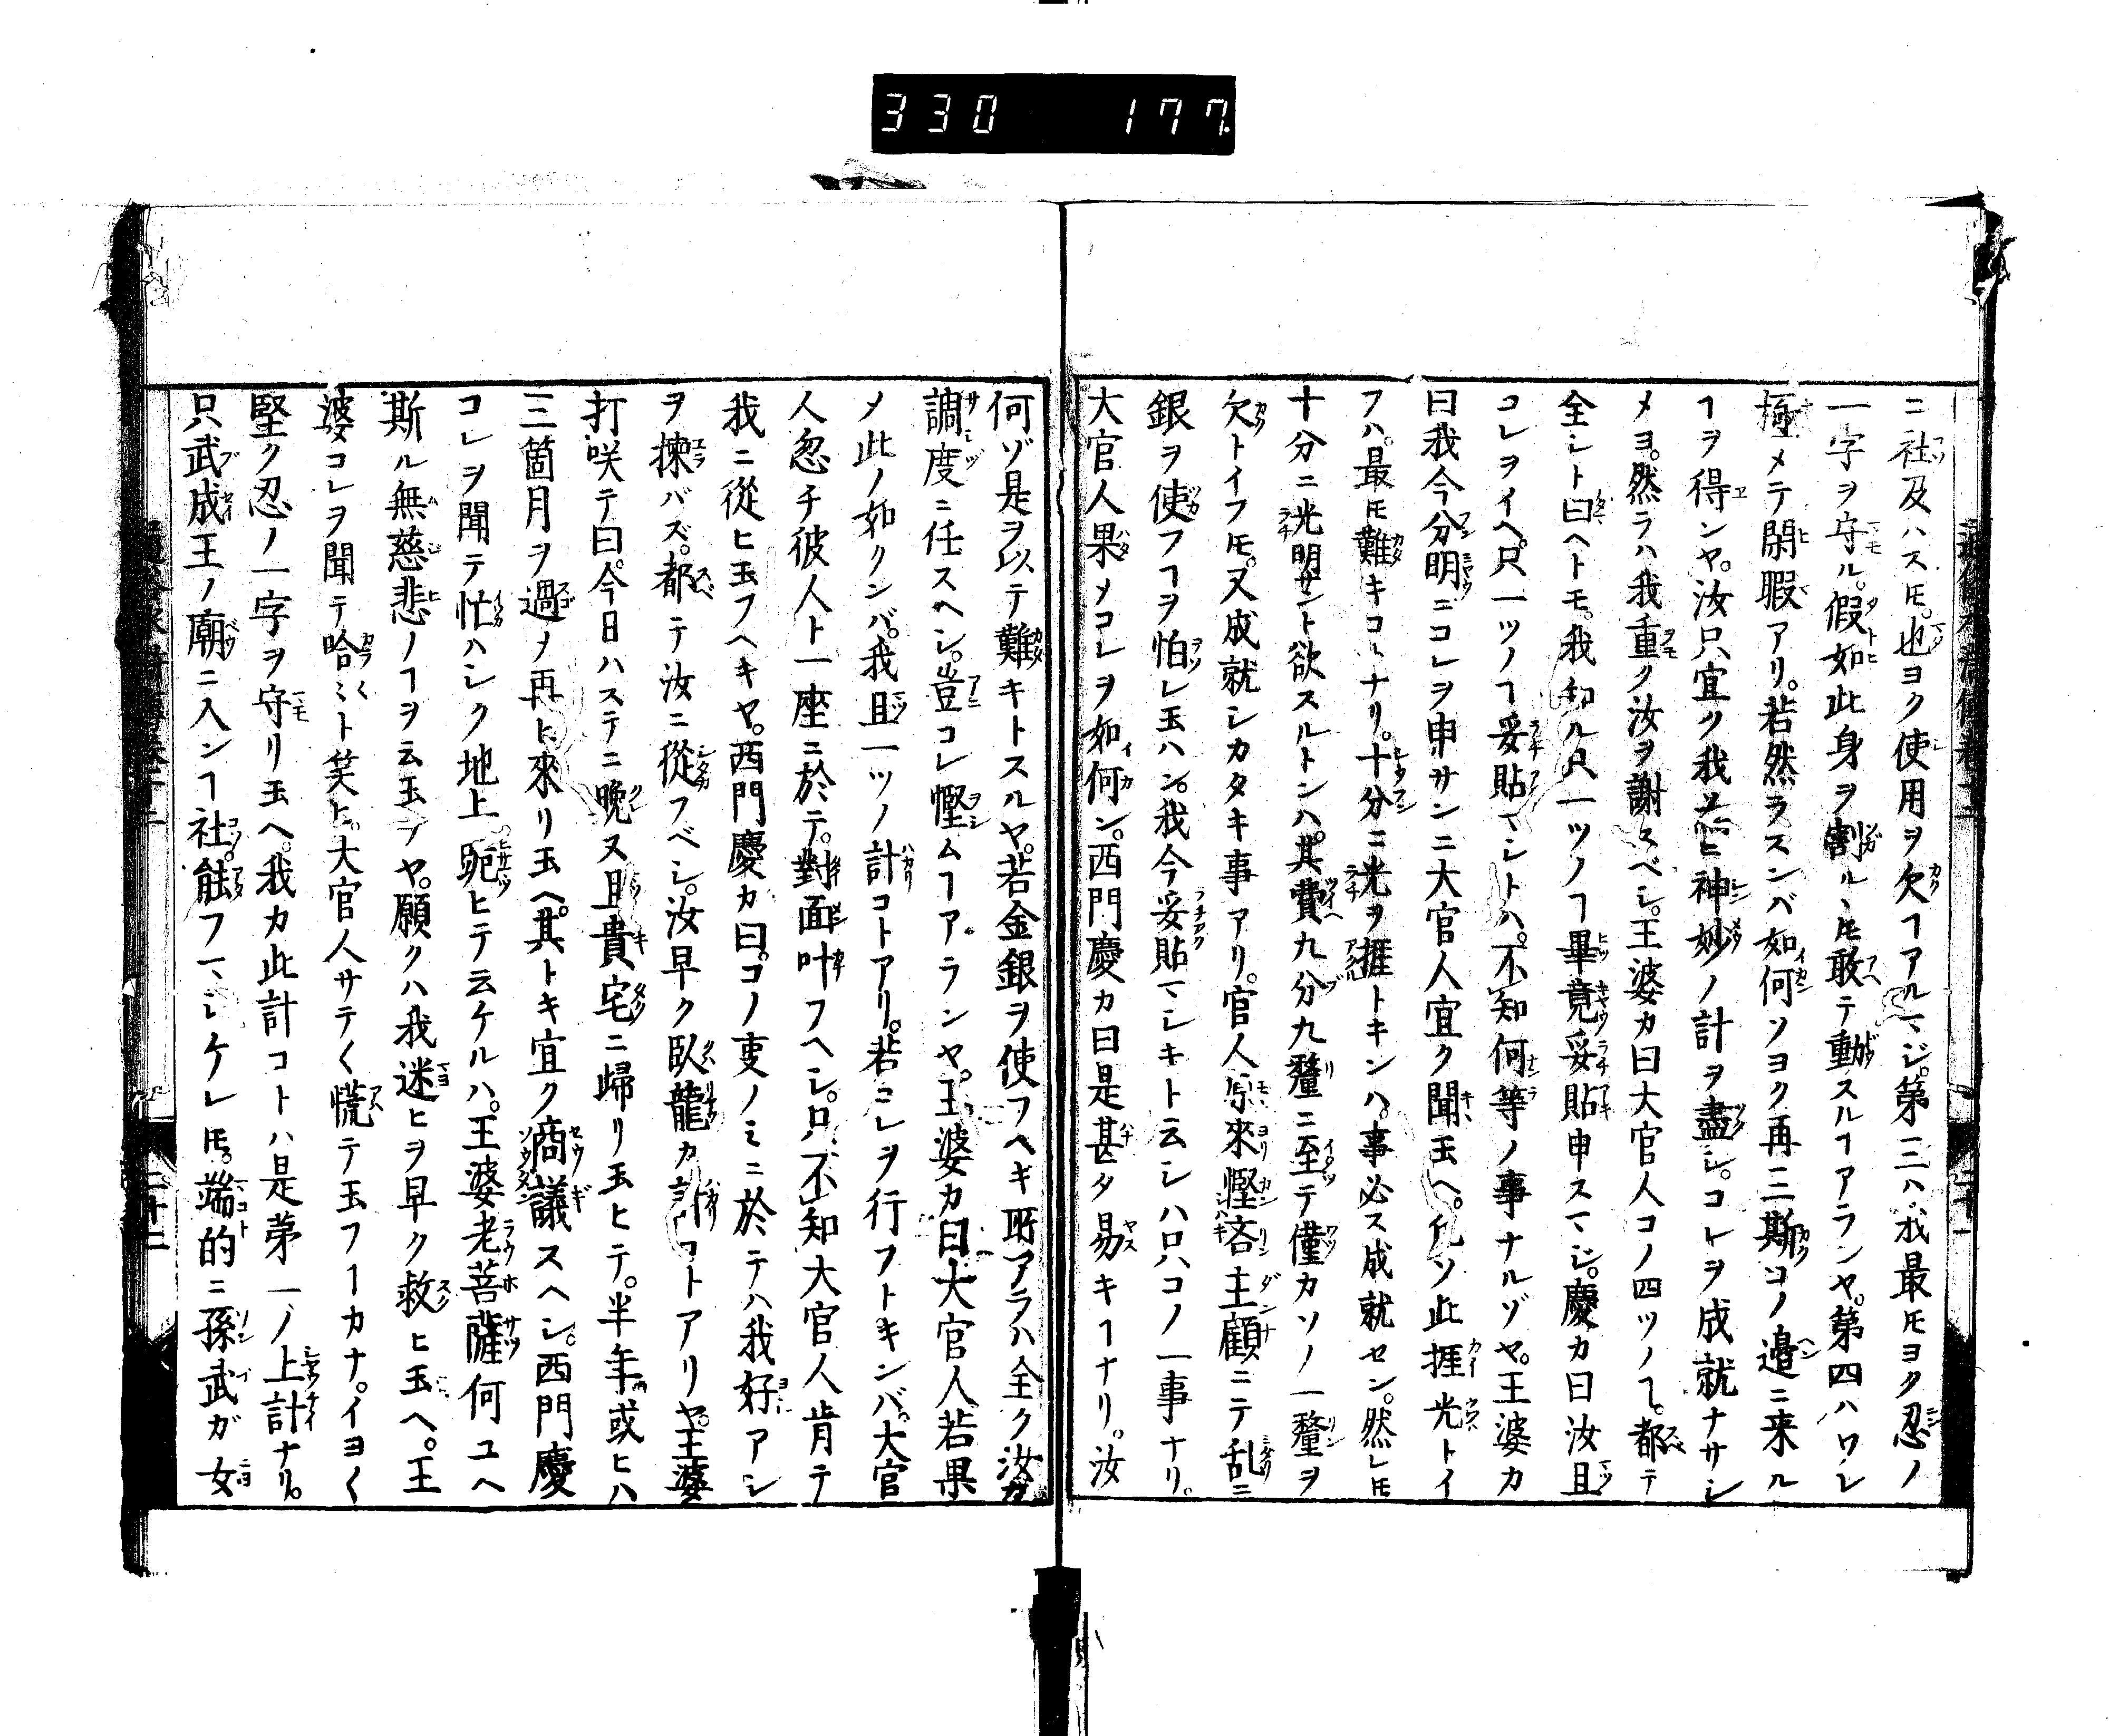 330 177
ニ社及ハス𪜈。也ヨク使用ヲ欠ヿアルマジ。第三ハ我最モヨク忍ノ
一字ヲ守ル。假如此身ヲ割ルヽ𪜈敢テ動スルヿアランヤ。第四ハワレ
極メテ閑暇アリ。若然ラスンバ如何ソヨク再三斯コノ邉ニ来ル
ヿヲ得ンヤ。汝只宜ク我為ニ神妙ノ計ヲ盡シ。コレヲ成就ナサシ
メヨ。然ラハ我重ク汝ヲ謝スベシ。王婆カ曰大官人コノ四ツノヿ。都テ
全シト曰ヘトモ。我知ル只一ツノヿ畢竟妥貼申スマジ。慶カ曰汝且
コレヲイヘ。只一ツノヿ妥貼マシトハ。不知何等ノ事ナルゾヤ。王婆カ
曰我今分明ニコレヲ申サンニ大官人宜ク聞玉ヘ。凡ソ此捱光トイ
フハ。最モ難キコトナリ。十分ニ光ヲ捱トキンハ。事必ス成就セン。然レ𪜈
十分ニ光明サント欲スルトンハ。其費九分九釐ニ至テ僅カソノ一釐ヲ
欠トイフ𪜈。又成就シカタキ事アリ。官人原來慳吝主顧ニテ乱ニ
銀ヲ使フヿヲ怕レ玉ハン。我今妥貼マシキト云シハ只コノ一事ナリ。
大官人果メコレヲ如何ン。西門慶カ曰是甚タ易キヿナリ。汝
何ゾ是ヲ以テ難キトスルヤ。若金銀ヲ使フヘキ所アラハ全ク汝カ
調度ニ任スヘシ。豈コレ慳ムヿアランヤ。王婆カ曰大官人若果
メ此ノ如クンバ。我且一ツノ計コトアリ。若コレヲ行フトキンバ。大官
人忽チ彼人ト一座ニ於テ。對面叶フヘシ。只不知大官人肯テ
我ニ從ヒ玉フヘキヤ。西門慶カ曰。コノ事ノミニ於テハ我好アシ
ヲ揀バズ。都テ汝ニ從フベシ。汝早ク臥龍カ計コトアリヤ。王婆
打咲テ曰。今日ハステニ晩ヌ且貴宅ニ歸リ玉ヒテ。半年或ヒハ
三箇月ヲ過メ再ヒ來リ玉ヘ。其トキ宜ク商議スヘシ。西門慶
コレヲ聞テ忙ハシク地上ニ跪ヒテ云ケルハ。王婆老菩薩何ユヘ
斯ル無慈悲ノヿヲ云玉フヤ。願クハ我迷ヒヲ早ク救ヒ玉ヘ。王
婆コレヲ聞テ哈ミト笑ヒ。大官人サテ〱慌テ玉フヿカナ。イヨ〱
堅ク忍ノ一字ヲ守リ玉ヘ。我カ此計コトハ是第一ノ上計ナリ。
只武成王ノ廟ニ入ンヿ社。能フマシケレ𪜈。端的ニ孫武ガ女